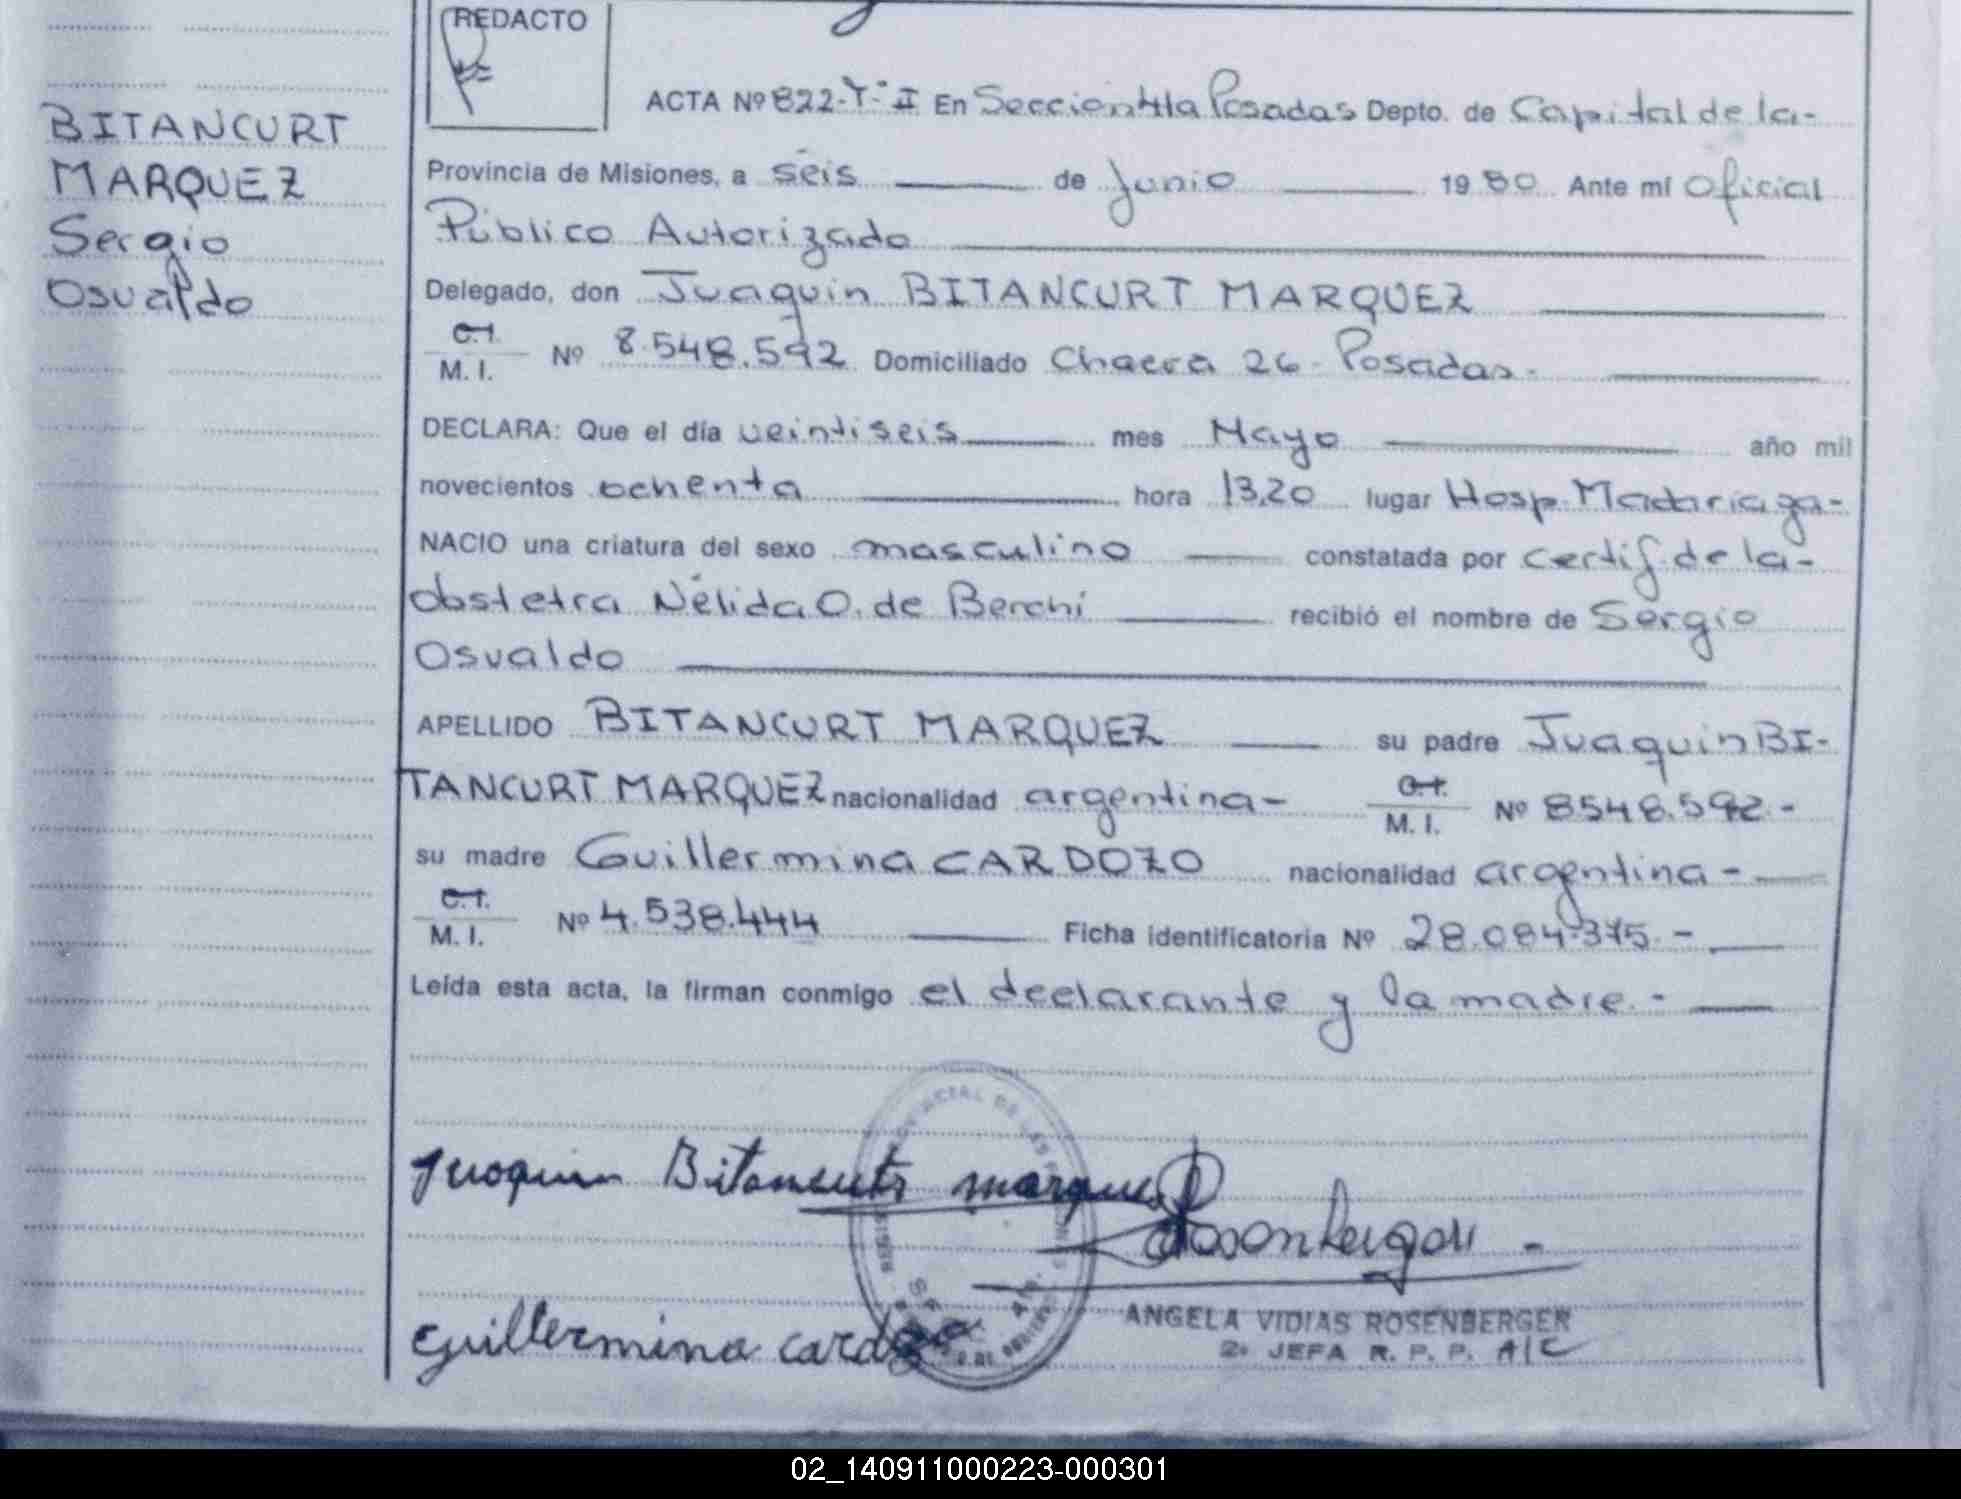 REDACTO
BITANCURT
MARQUEZ
Sergio
Osvaldo
ACTA Nº 822-Tº II En Sección 4ta Posadas Depto. de Capital de la-
Provincia de Misiones, a seis de junio 1980 Ante mí Oficial
Público Autorizado
Delegado, don Juaquin BITANCURT MARQUEZ
C.I.
M. I. Nº 8.548.592 Domiciliado Chacra 26- Posadas-
DECLARA: Que el día veintiseis mes Mayo año mil
novecientos ochenta hora 13,20 lugar Hosp. Madariaga-
NACIO una criatura del sexo masculino constatada por certif. de la-
obstetra Nélida O. de Berchi recibió el nombre de Sergio
Osvaldo
APELLIDO BITANCURT MARQUEZ su padre Juaquin BI-
TANCURT MARQUEZ nacionalidad argentina- C.I.
M. I. Nº 8548.592.-
su madre Guillermina CARDOZO nacionalidad argentina-
C.I.
M. I. Nº 4.538.444 Ficha identificatoria Nº 28.084.375.-
Leída esta acta, la firman conmigo el declarante y la madre.-
PROVINCIAL DE LAS PERSONAS
Juaquin Bitancurt marques
Rosenberger
Guillermina cardozo
ANGELA VIDIAS ROSENBERGER
2ª JEFA R. P. P. A/C
02_140911000223-000301